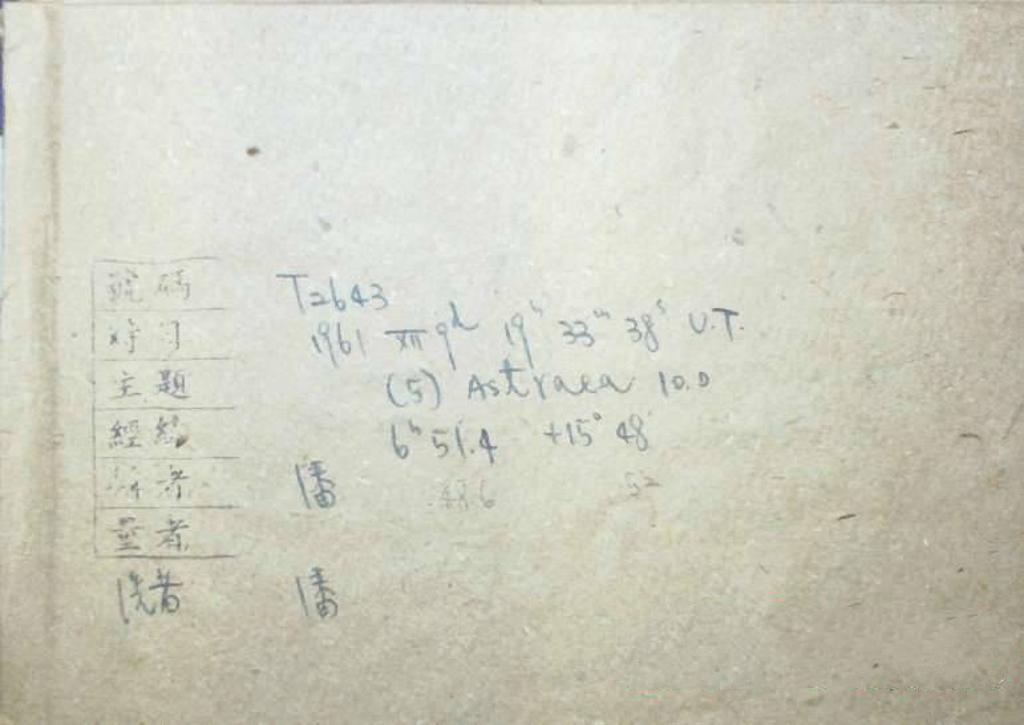 號碼 T2643
時刻 1961 XII 9d 19h 33m 38s U.T.
主題 (5) Astraea 10.0
經緯 6h 51.4 +15° 48'
者 潘 48.6 52
者
洗者 潘